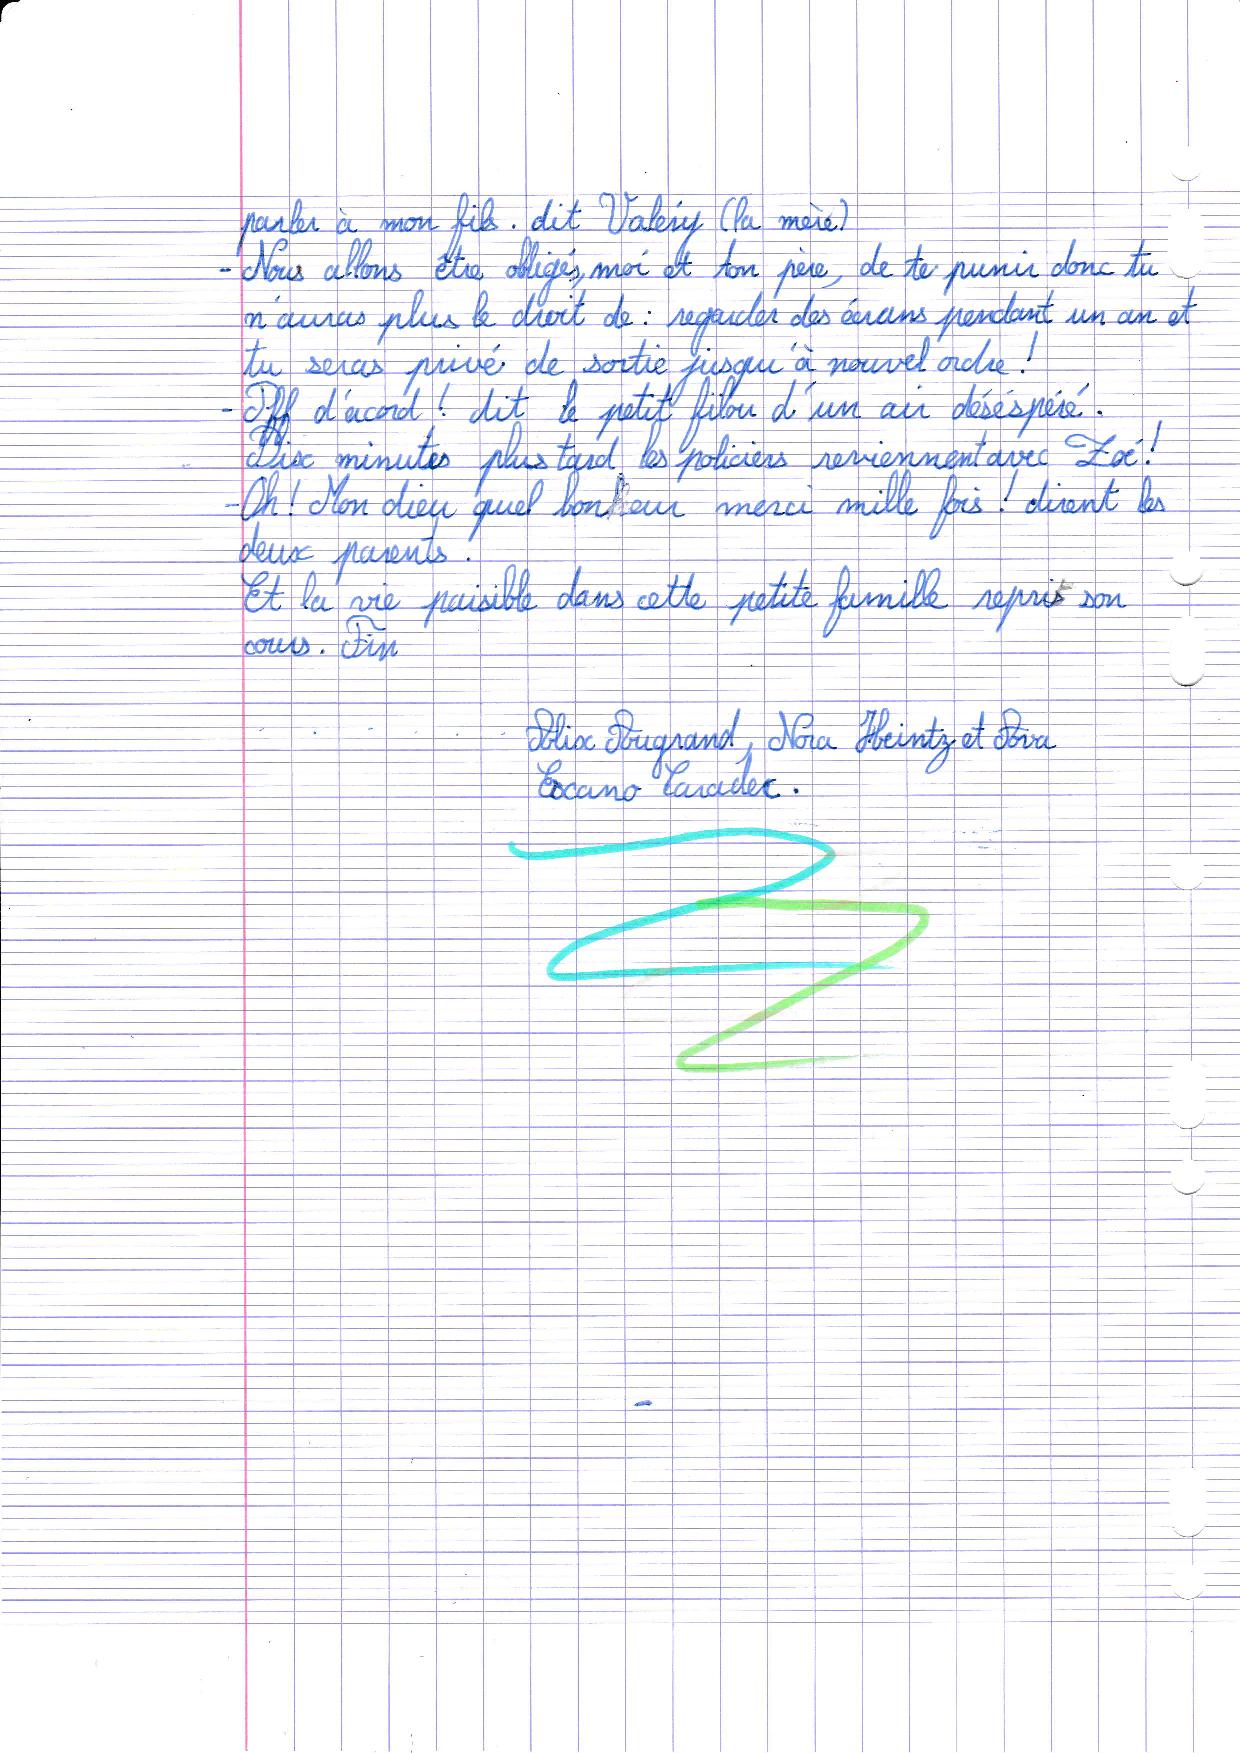 parler à mon fils. dit Valéry (la mère)
- Nous allons être obligés, moi et ton père, de te punir donc tu
n'auras plus le droit de : regarder des écrans pendant un an et
tu seras privé de sortie jusqu'à nouvel ordre !
- Pff d'acord ! dit le petit filou d'un air déséspéré.
Dix minutes plus tard les policiers reviennent avec Zoé !
- Oh ! Mon dieu quel bonheur merci mille fois ! dirent les
deux parents.
Et la vie paisible dans cette petite famille reprit son
cours. Fin
Nora Heintz et